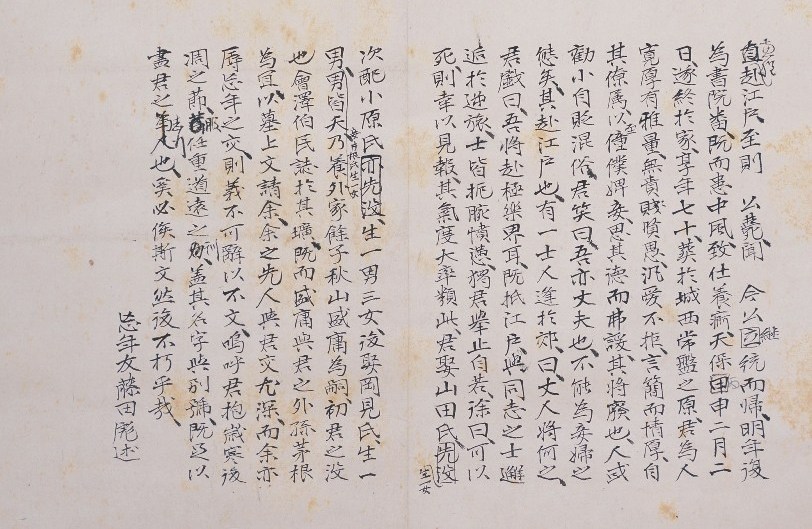 直赴江戸至則　公薨聞　今公立継統而帰明年復
為書院番既而患中風致仕養痾天保甲申二月二
日遂終於家享年七十葬於城西常磐之原君為人
寛厚有雅量無貴賤賢愚汎愛不拒言簡而情厚自
其僚属以至僮僕婢妾思其徳而弗諼其将癈也人或
勸小自貶混俗君笑曰吾亦丈夫也不能為妾婦之
態矣其赴江戸也有一士人逢於郊曰丈人將何之
君戯曰吾将赴極樂界耳既抵江戸與同志之士邂
逅於逆旅士皆扼腕憤懣獨君擧止自若徐曰可以
死則幸以見報其氣度大率類此君娶山田氏先沒
生一女
次配小原氏亦先沒生一男三女後娶岡見氏生一
男男皆夭乃養外家餘子秋山盛庸為嗣初君之沒
也會澤伯民誌於其壙既而盛庸與君之外孫茅根
為宜以墓上文請余余之先人與君交尤深而余亦
辱忘年之交則義不可辭以不文嗚呼君抱歳寒後
凋之節服任重道遠之訓蓋其名字與別號既足以
盡君之為人也矣必俟斯文然後不朽乎哉
忘年友藤田彪述